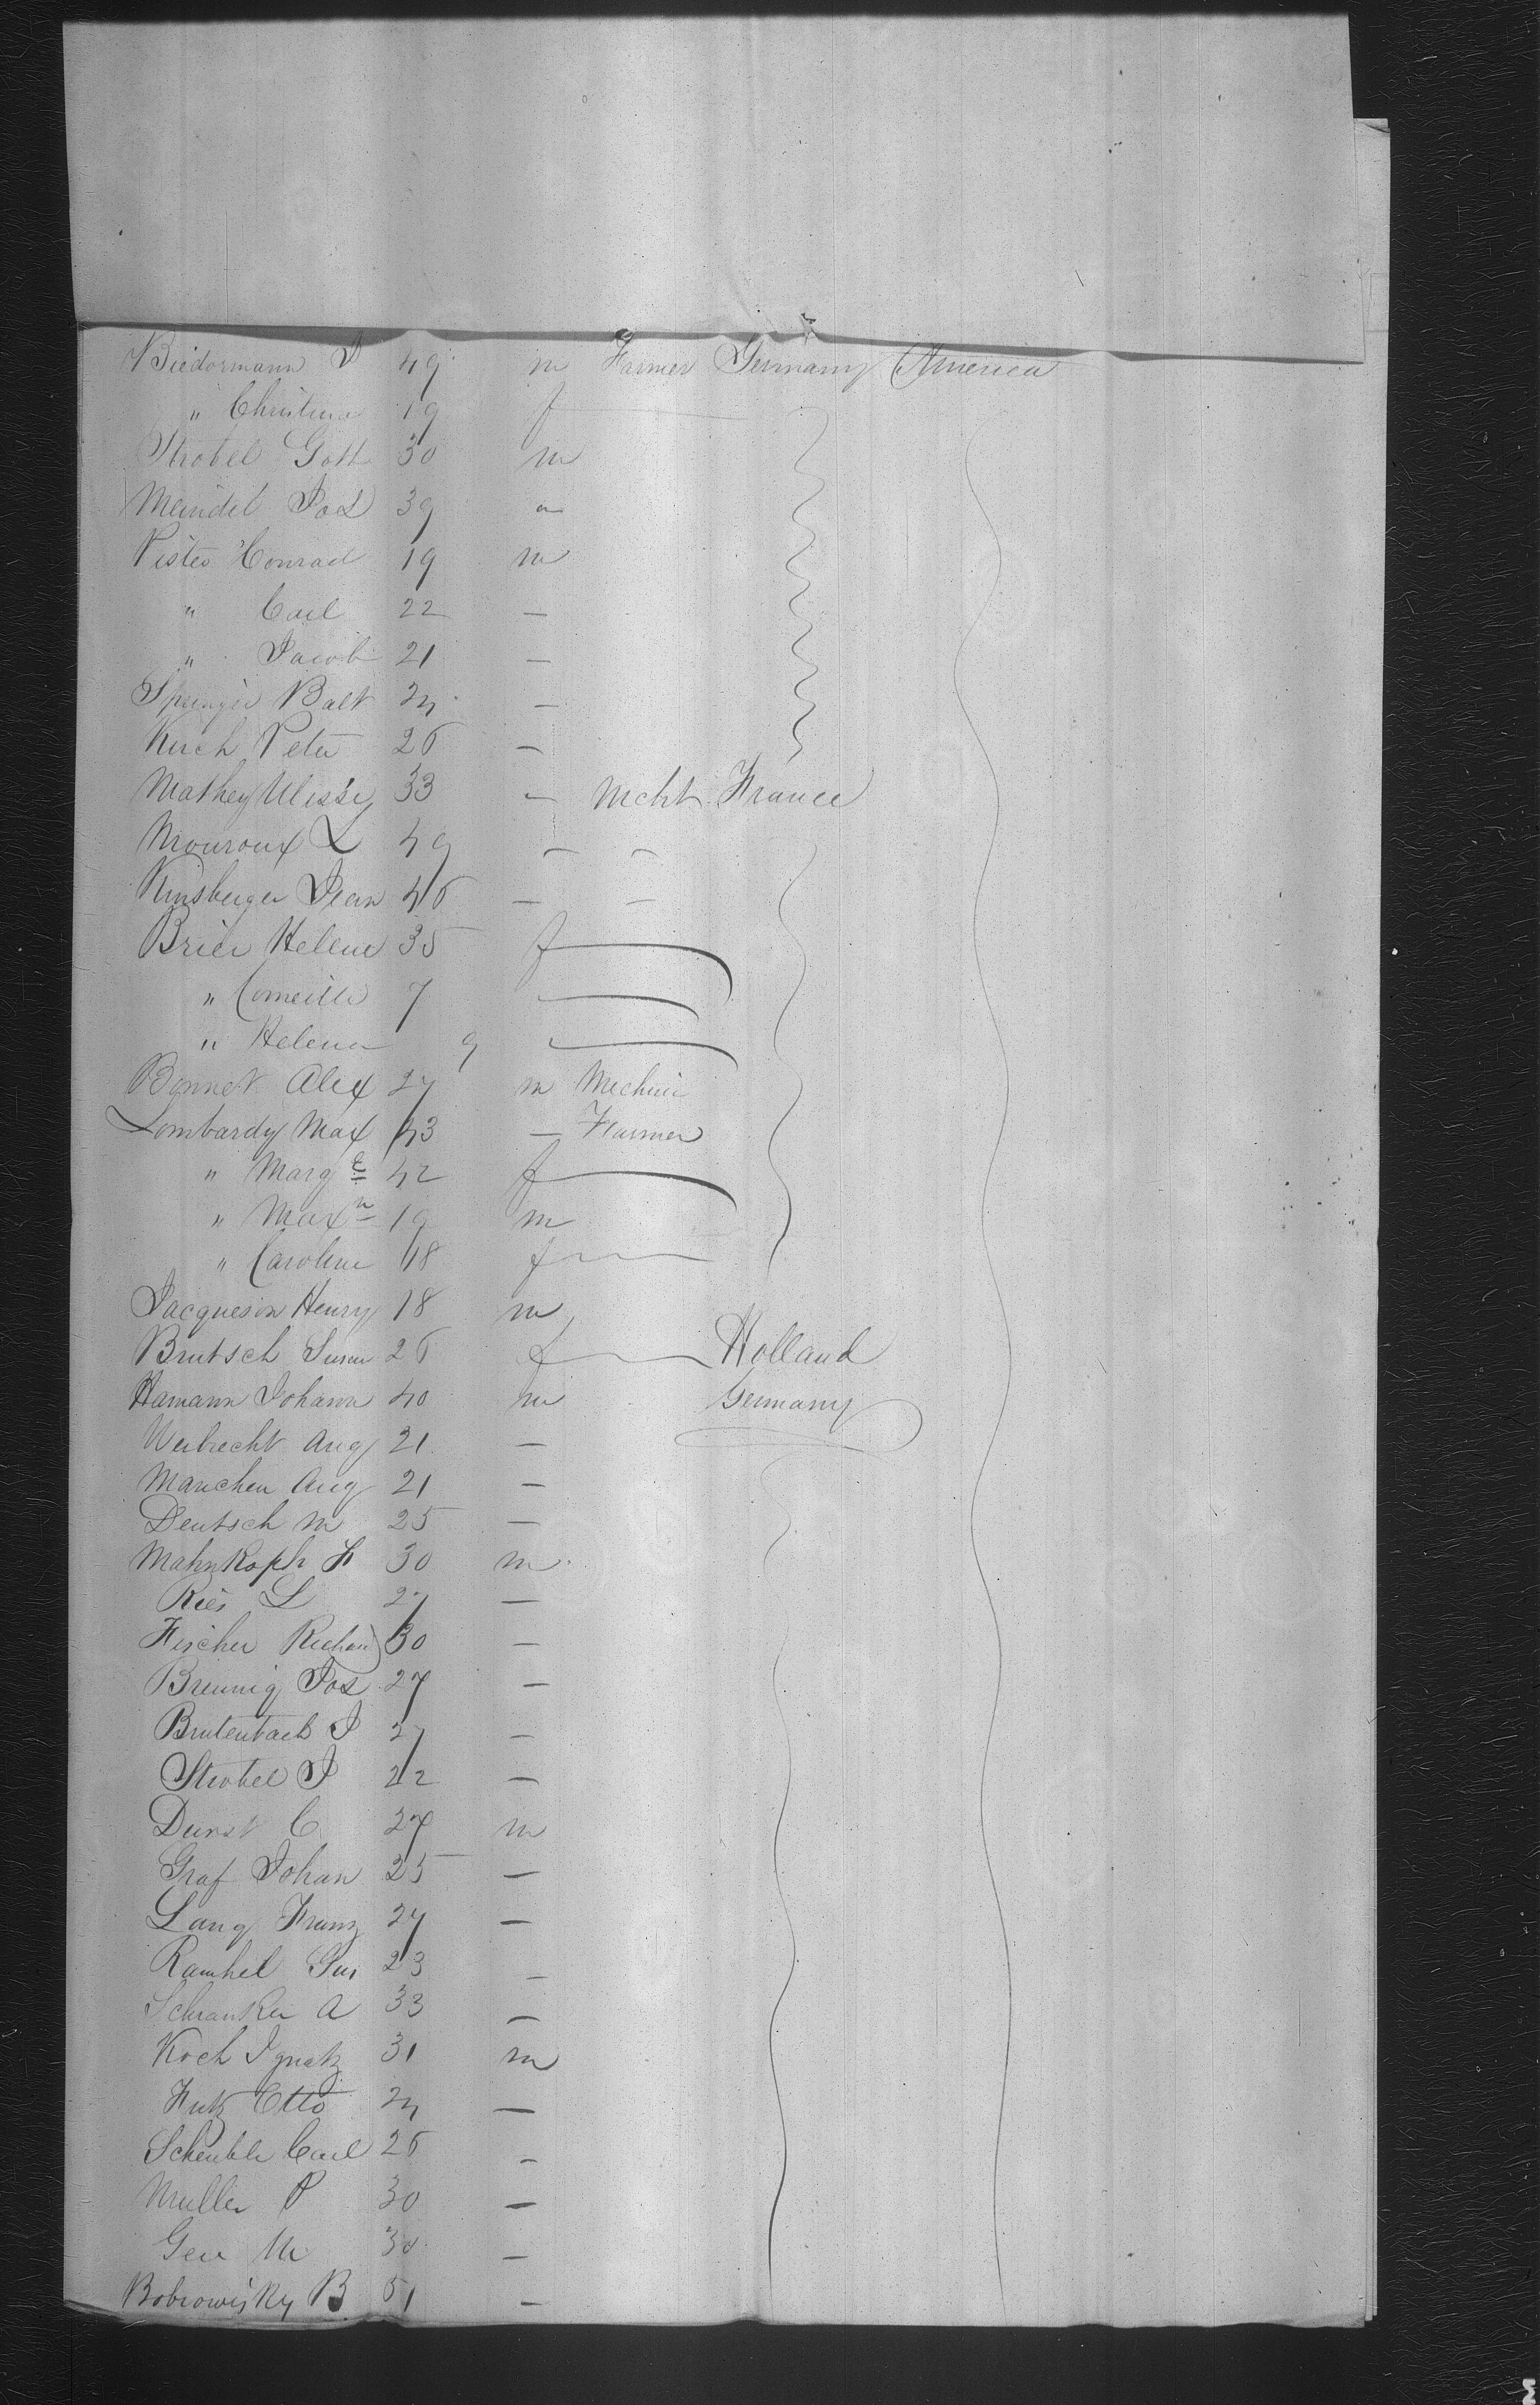 Biedermann J 49 m Farmer Germany America
" Christina 19 f
Strobel Gott 30 m
Meindel Jos 39 m
Pister Conrad 19 m
" Carl 22 —
" Jacob 21 —
Springer Balt 24 —
Kirch Peter 26 —
Mathey Ulisse 33 — Mcht France
Mouroux L 49 — —
Kinsberger Jean 46 — —
Brier Helene 35 f
" Corneille 7
" Helena 9
Bonnet Alex 27 m Mechnic
Lombardy Max 43 — Farmer
" Marg e 42 f
" Max n 19 m
" Caroline 18 f
Jacqueson Henry 18 m
Brutsch Susan 26 f Holland
Hamann Johann 40 m Germany
Weibrecht Aug 21 —
Manchen Aug 21 —
Deutsch M 25 —
Mahnkoph H 30 m
Ries L 27 —
Fischer Richard 30 —
Breunig Jos 27 —
Brutenbach J 27 —
Strobel J 22 —
Durst C 27 m
Graf Johan 25 —
Lang Franz 27 —
Ramhel Gus 23 —
Schranker A 33 —
Koch Ignatz 31 m
Futz Otto 24 —
Scheuble Carl 26 —
Muller P 30 —
Geri M 30 —
Bobrowisky B 51 —